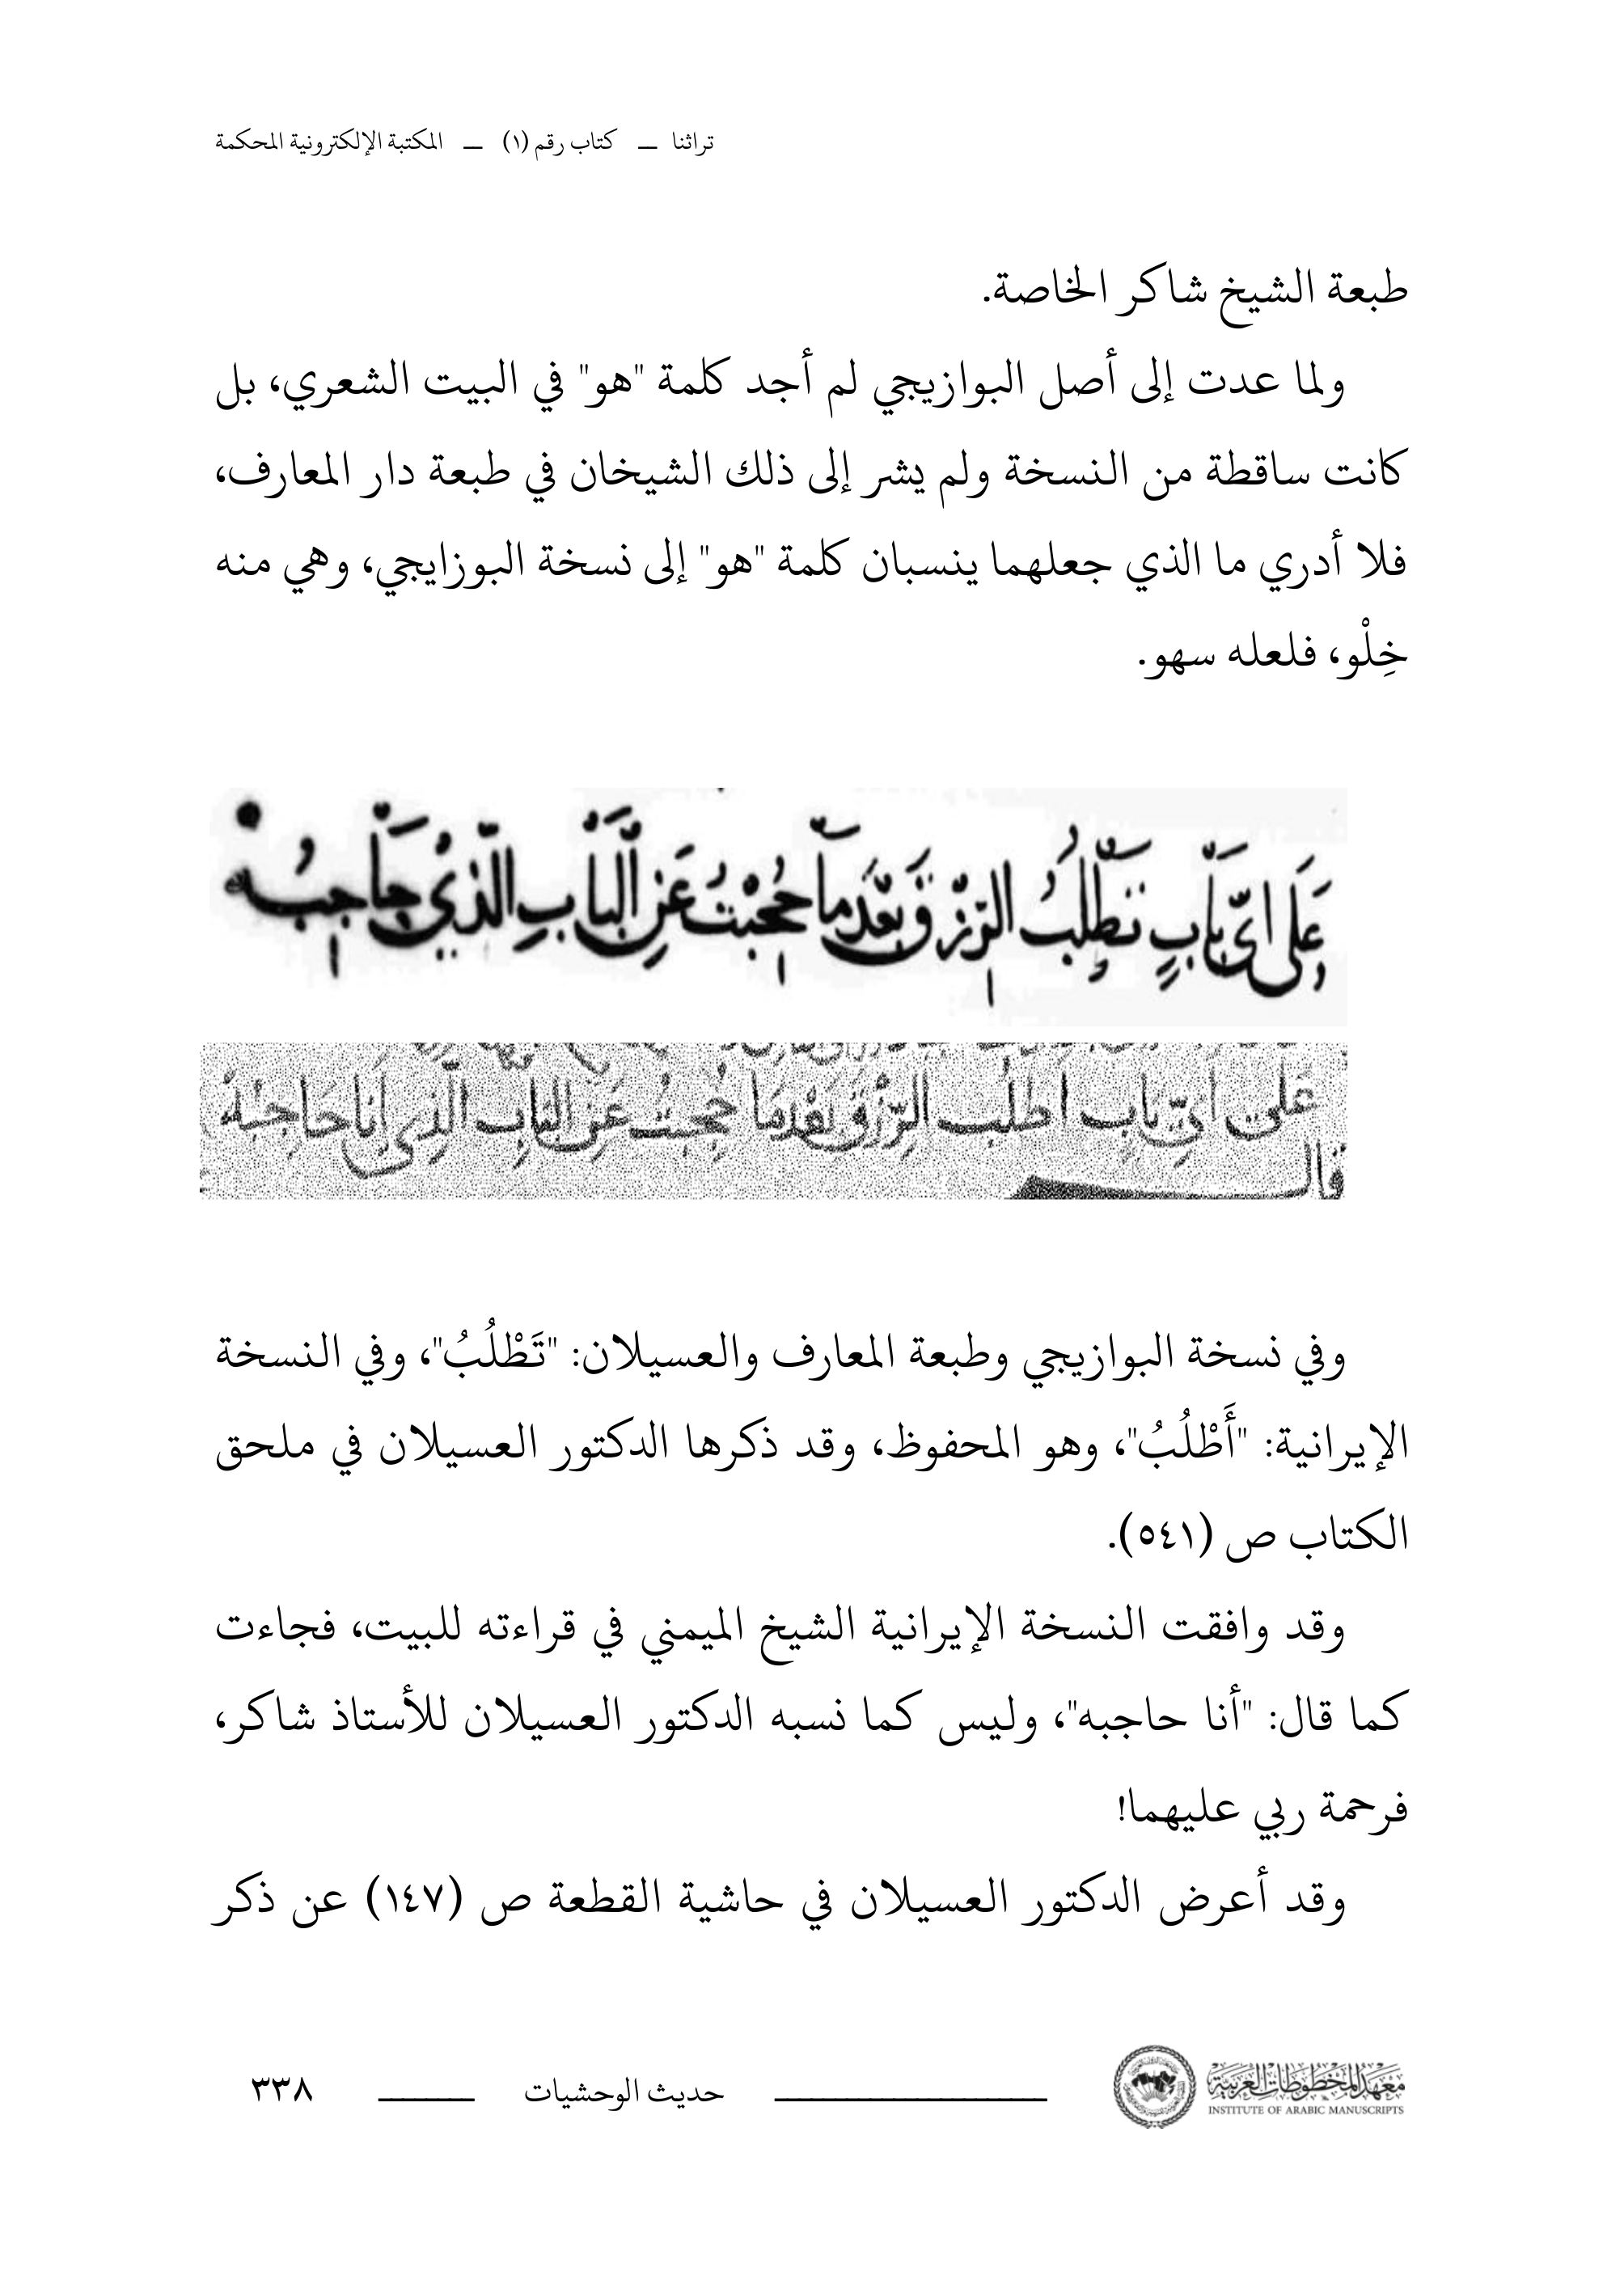 تراثنا ــ كتاب رقم (١) ــ المكتبة الإلكترونية المحكمة
طبعة الشيخ شاكر الخاصة.
ولما عدت إلى أصل البوازيجي لم أجد كلمة "هو" في البيت الشعري، بل
كانت ساقطة من النسخة ولم يشر إلى ذلك الشيخان في طبعة دار المعارف،
فلا أدري ما الذي جعلهما ينسبان كلمة "هو" إلى نسخة البوزايجي، وهي منه
خِلْو، فلعله سهو.
عَلى اىّ بَابٍ تَطْلُبُ الرّزق بَعْدَ مَا حُجِبْتُ عَنِ الْبَابِ الّذي حَاجِبُهْ
عَلى اىّ بَابٍ اطلُب الرّزْقَ بَعْدمَا حُجِبتُ عَنِ البَابِ الّذِى أنَا حَاجِبُهُ
قال
وفي نسخة البوازيجي وطبعة المعارف والعسيلان: "تَطْلُبُ"، وفي النسخة
الإيرانية: "أَطْلُبُ"، وهو المحفوظ، وقد ذكرها الدكتور العسيلان في ملحق
الكتاب ص (٥٤١).
وقد وافقت النسخة الإيرانية الشيخ الميمني في قراءته للبيت، فجاءت
كما قال: "أنا حاجبه"، وليس كما نسبه الدكتور العسيلان للأستاذ شاكر،
فرحمة ربي عليهما!
وقد أعرض الدكتور العسيلان في حاشية القطعة ص (١٤٧) عن ذكر
معهد المخطوطات العربية
INSTITUTE OF ARABIC MANUSCRIPTS
حديث الوحشيات
٣٣٨